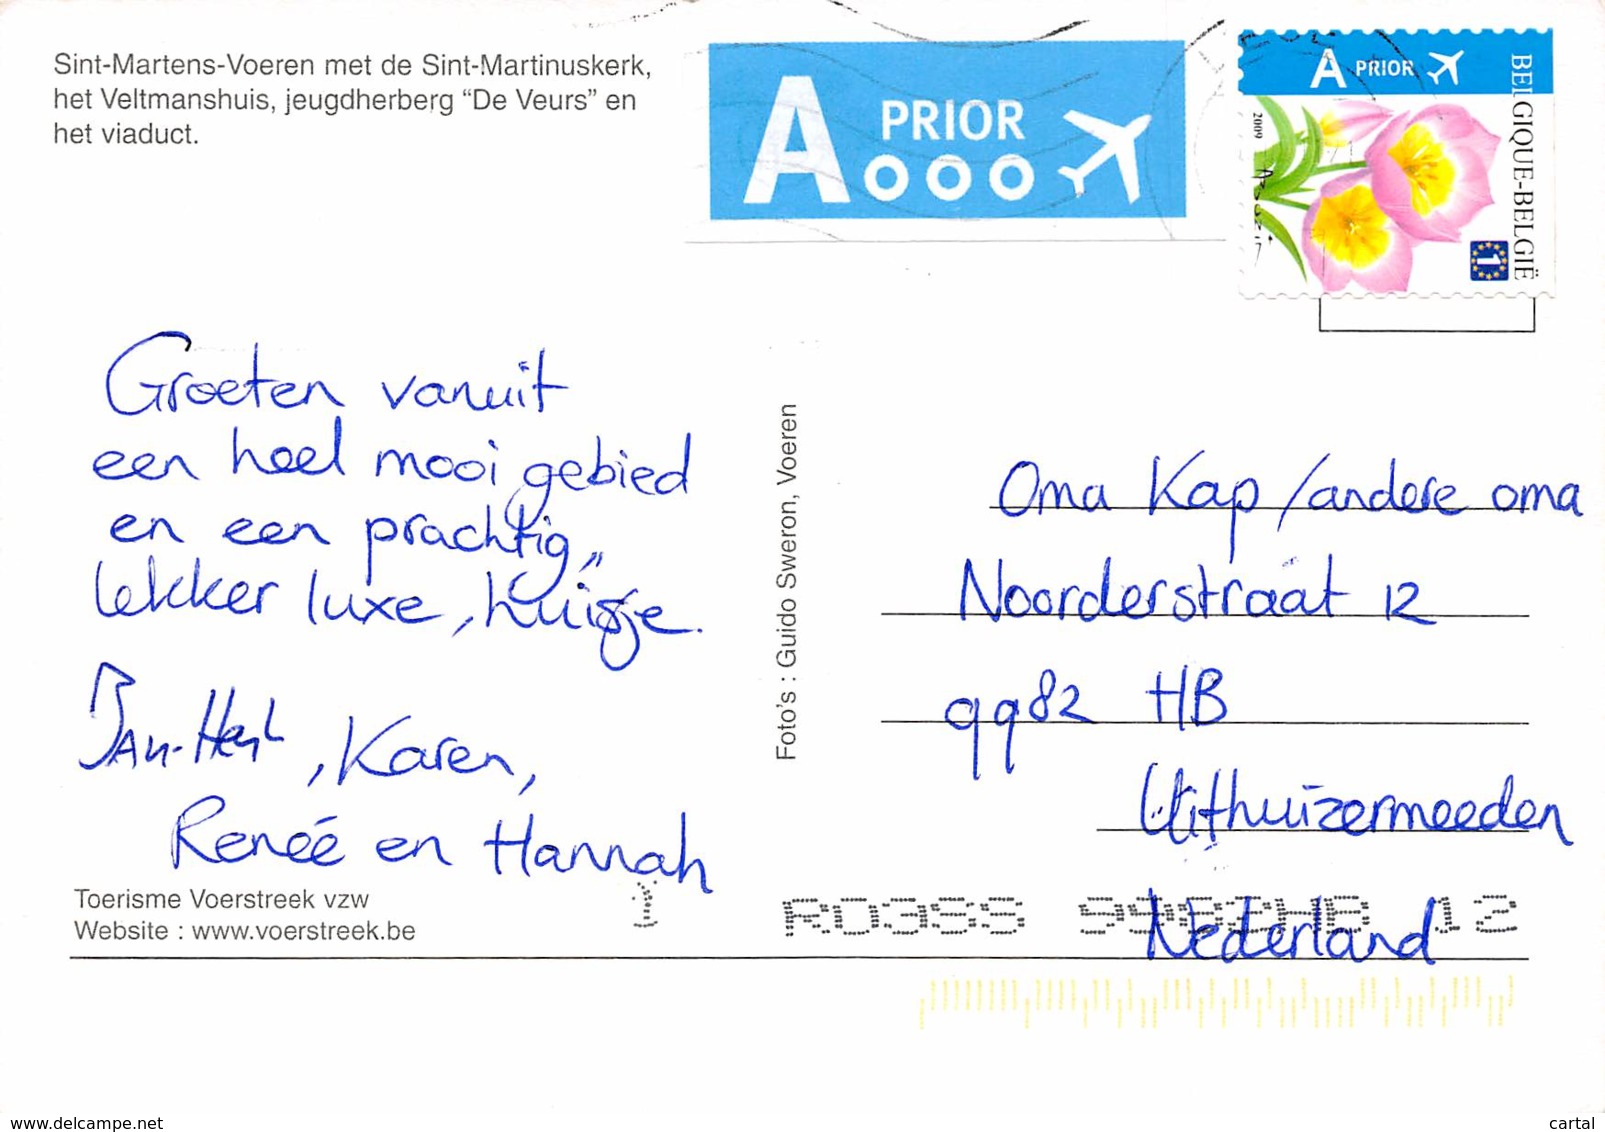 Sint-Martens-Voeren met de Sint-Martinuskerk,
het Veltmanshuis, jeugdherberg “De Veurs” en
het viaduct.
A PRIOR
A PRIOR
BELGIQUE-BELGIË
2009
1
Groeten vanuit
een heel mooi gebied
en een prachtig,,
lekker luxe, huisje.
Jan-Henk, Karen,
Reneé en Hannah
Foto's : Guido Sweron, Voeren
Oma Kap /andere oma
Noorderstraat 12
9982 HB
Uithuizermeeden
Nederland
Toerisme Voerstreek vzw
Website : www.voerstreek.be
RD3SS 9982HB 12
www.delcampe.net
cartal